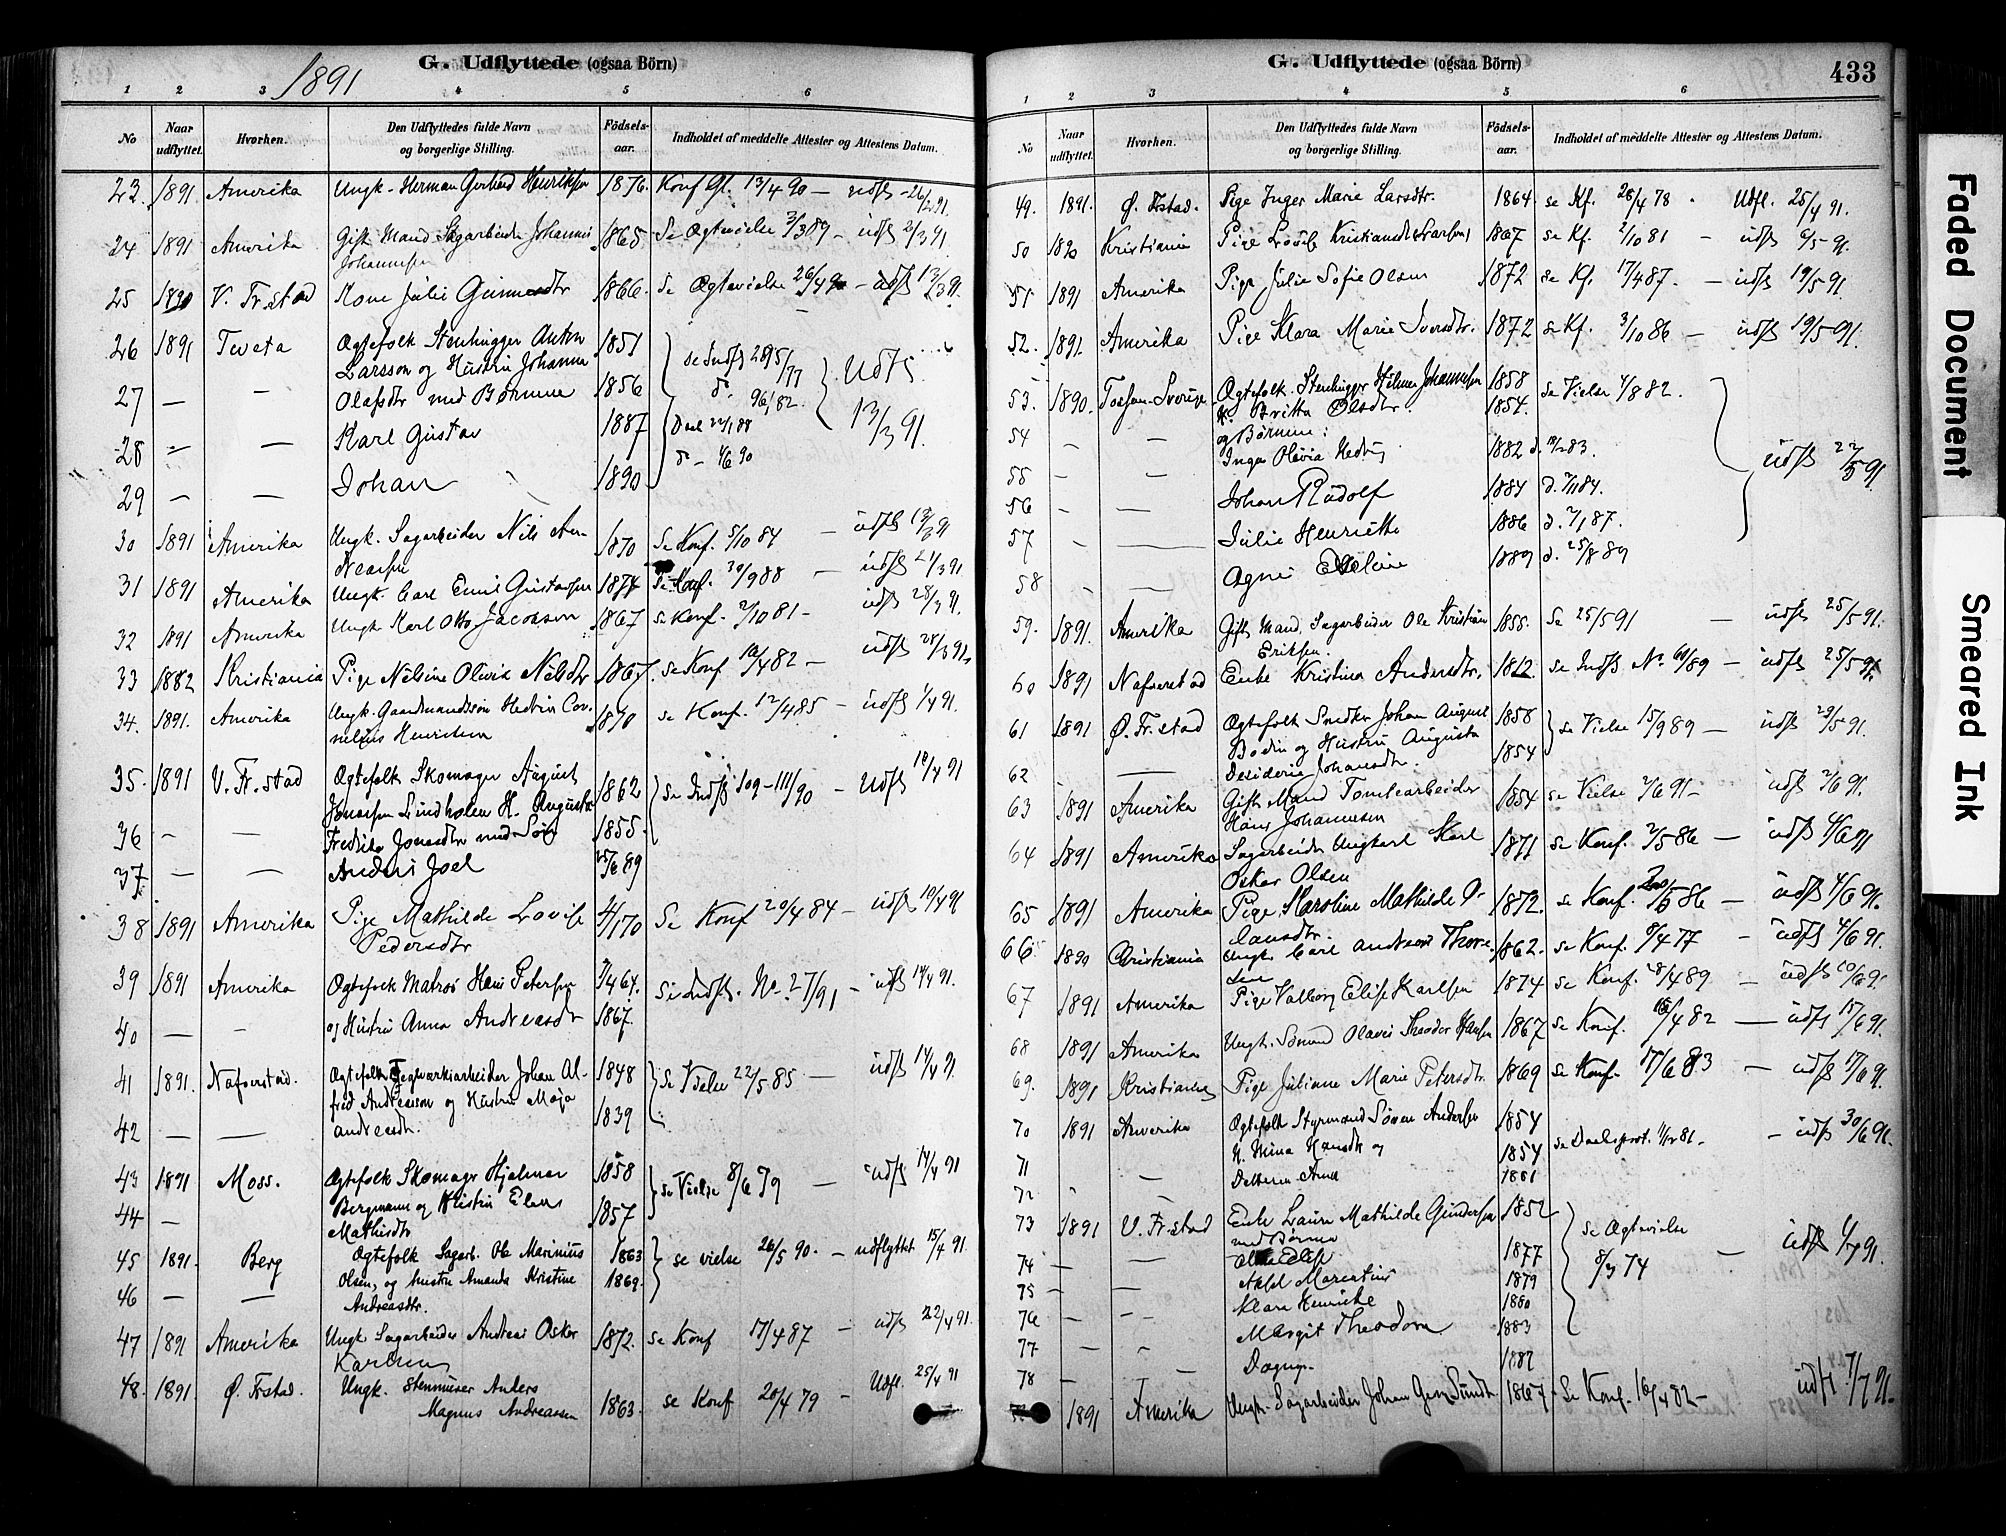 G. Udflyttede (ogsaa Börn)
1891
1 2 3 4 5 6
No
Naar udflyttet.
Hvorhen.
Den Udflyttedes fulde Navn og borgerlige Stilling.
Födselsaar.
Indholdet af meddelte Attester og Attestens Datum.
23. 1891. Amerika Ungk. Herman Gerhard Henriksen 1876. Konf Gl. 13/4 90 — udfl 26/2 91.
24 1891 Amerika Gift Mand Sagarbeider Johannes 1865 Se Ægtevielse 3/3 89 — udfl 2/3 91
Johannesen
25 1890 V. Fr.stad Kone Julie Gunnersdtr 1866. Se Ægtevielse 26/4 90 — udfl 13/3 91.
26 1891 Tveta Ægtefolk Stenhugger Anton 1851 se Indfl 2895/77
Larsson og Hustru Johanna
27 — — Olafsdtr med Børnene 1856 do 96/82. Udfl. 13/3 91.
28 — — Karl Gustav 1887 Daab 22/1 88
29 — — Johan 1890 do — 4/6 90
30 1891 Amerika Ungk. Sagarbeider Nils An- 1870 Se Konf. 5/10 84 — udfl 13/3 91
dreasen
31 1891 Amerika Ungk. Carl Emil Gustavsen 1874 Se Konf. 30/9 88 — udfl 21/3 91
32 1891 Amerika Ungk Karl Otto Jacobsen 1867 se Konf. 2/10 81 — udfl 28/3 91.
33 1882 Kristiania Pige Nilsine Olivia Nilsdtr 1867. se Konf 16/4 82 — udfl 28/3 91.
34. 1891. Amerika Ungk. Gaardmandssøn Hedvin Cor- 1870 se Konf. 12/4 85 — udfl 1/4 91.
nelius Henriksen
35. 1891 V. Fr.stad Ægtefolk Skomager August 1862 se Indfl 109-111/90 — Udfl 10/4 91
Jonassen Lindholm H. Augusta
36 — — Fredrika Jonasdtr med Søn 1855
37 — — Anders Joel 25/6 89
38 1891 Amerika Pige Mathilde Lovise 4/1 70 Se Konf 20/4 84 — udfl 10/4 91
Pedersdtr
39 1891 Amerika Ægtefolk Matros Hans Petersen 7/4 64. Se Indfl. No. 27/91 — udfl 14/4 91.
40 — — og Hustru Anna Andreasdtr 1867.
41 1891. Nafverstad. Ægtefolk Teglværksarbeider Johan Al- 1848 se Vielse 22/5 85 — udfl 14/4 91.
fred Andreasson og Hustru Maja 1839
42 — — Andreasdtr.
43 1891 Moss. Ægtefolk Skomager Hjalmar 1858 se Vielse 8/6 79 — udfl 14/4 91
44 — Bergmann og Hustru Elen 1857
Mathisdtr
45 1891. Berg Ægtefolk Sagarb. Ole Marinius 1863 se vielse 26/5 90. — udflyttet 15/4 91.
46 — — Olsen, og hustru Amanda Kristine 1869.
Andreasdtr.
47 1891 Amerika Ungk Sagarbeider Andreas Oskar 1872. se Konf 17/4 87 — udfl 22/4 91.
Karlsen
48. 1891. Ø. Frstad. Ungk. Stenmurer Anders 1863. se Konf 20/4 79 — Udfl. 25/4 91
Magnus Andreassen
G. Udflyttede (ogsaa Börn)
433
1 2 3 4 5 6
No
Naar udflyttet.
Hvorhen.
Den Udflyttedes fulde Navn og borgerlige Stilling.
Födselsaar.
Indholdet af meddelte Attester og Attestens Datum.
49. 1891. Ø. Frstad. Pige Inger Marie Larsdtr. 1864. se Kf. 28/4 78 . Udfl. 25/4 91.
50 1820 Kristiania Pige Lovise Kristiansdtr (Larsen) 1867 se Kf. 2/10 81 — udfl 6/5 91.
51. 1891 Amerika Pige Julie Sofie Olsen 1872 se Kf. 17/4 87. — udfl 19/5 91.
52. 1891. Amerika Pige Klara Marie Iversdtr. 1872 se Kf. 3/10 86 — udfl 19/5 91.
53. 1890. Tossen-Sverige. Ægtefolk. Stenhugger Hilmer Johannesen 1858 se Vielse 4/8 82.
H. Britta Olsdtr. 1854.
54 — — og Børnene:
Inga Olivia Hedvig 1882 d. 18/2 83. udfl 22/5 91.
55 — — Johan Rudolf 1884 d. 7/11 84.
56 — — Julie Henriette 1886 d. 2/1 87.
57 — — Agnes Eveline 1889 d. 25/8 89
58
59. 1891. Amerika Gift Mand, Sagarbeider Ole Kristian 1855. Se 25/5 91 — udfl 25/5 91.
Eriksen.
60 1891 Nafverstad Enke Kristina Andersdtr. 1812. se Indfl No. 60/89 — udfl 25/5 91.
61 1891 Ø. Fr.stad Ægtefolk Snedker Johan August 1858 se Vielse 15/9 89 — udfl 29/5 91.
Bodin og Hustru Augusta 1854
62 — Desideria Johansdtr.
63 1891 Amerika Gift Mand Tomtearbeider 1854 se Vielse 2/6 91 — udfl 2/6 91.
Hans Johannesen
64 1891 Amerika Sagarbeider Ungkarl Karl 1871 se Konf. 2/5 86 — udfl 4/6 91
Oskar Olsen
65 1891 Amerika Pige Karoline Mathilde O- 1872. se Konf. 2/5 86 — udfl 4/6 91.
lausdtr.
66 1890 Christiania Ungk. Carl Andreas Thore- 1862. se Konf. 8/4 77 — udfl 4/6 91.
sen
67 1891 Amerika Pige Valborg Elise Karlsen 1874 se Konf. 28/4 89 — udfl 10/6 91.
68 1891 Amerika Ungk. Sømand Olaves Theodor Hansen 1867 se Konf. 16/4 82 — udfl 17/6 91.
69. 1891 Kristiania Pige Juliane Marie Petersdtr. 1869 se Konf. 17/6 83 — udfl 17/6 91.
70 1891 Amerika Ægtefolk Styrmand Søren Andersen 1854 se Daabsprot. 11/12 81 — udfl 30/6 91.
71 — H. Mina Hansdtr og 1854
72 — Datteren Anna 1881
73 1891 V. Frstad Enke Laura Mathilde Gundersen 1852 se Ægtevielse 8/3 74 — udfl 1/7 91.
med Børnene
74 — — Elise 1877
75 — — Axel Marentius 1879
76 — — Klara Henrikke 1880
77 — — Margit Theodora 1883
78 — — Dagny. 1887
1891 Amerika Ungk. Sagarbeider Johan Georg Sundt 1867 Se Konf. 16/4 82 — udfl 7/7 91.
Faded Document
Smeared Ink